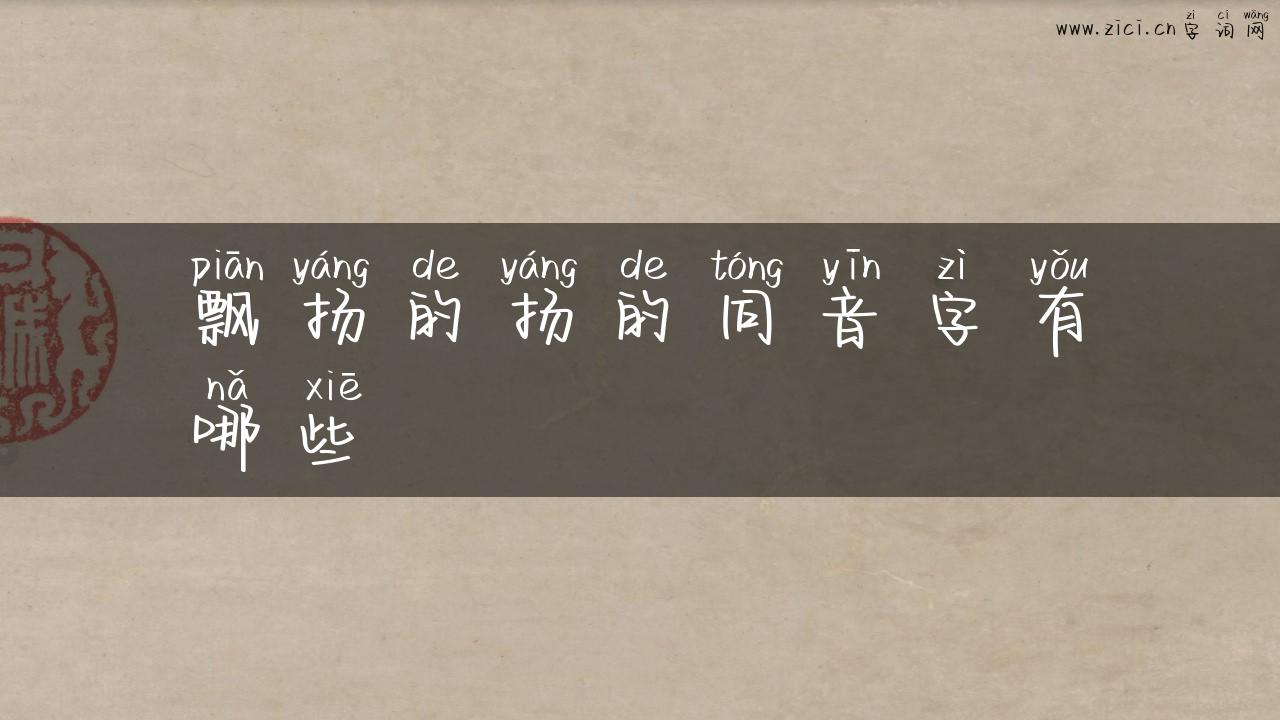 zì cí wǎng
www.zici.cn 字词网
piāo yáng de yáng de tóng yīn zì yǒu
飘扬的扬的同音字有
nǎ xiē
哪些